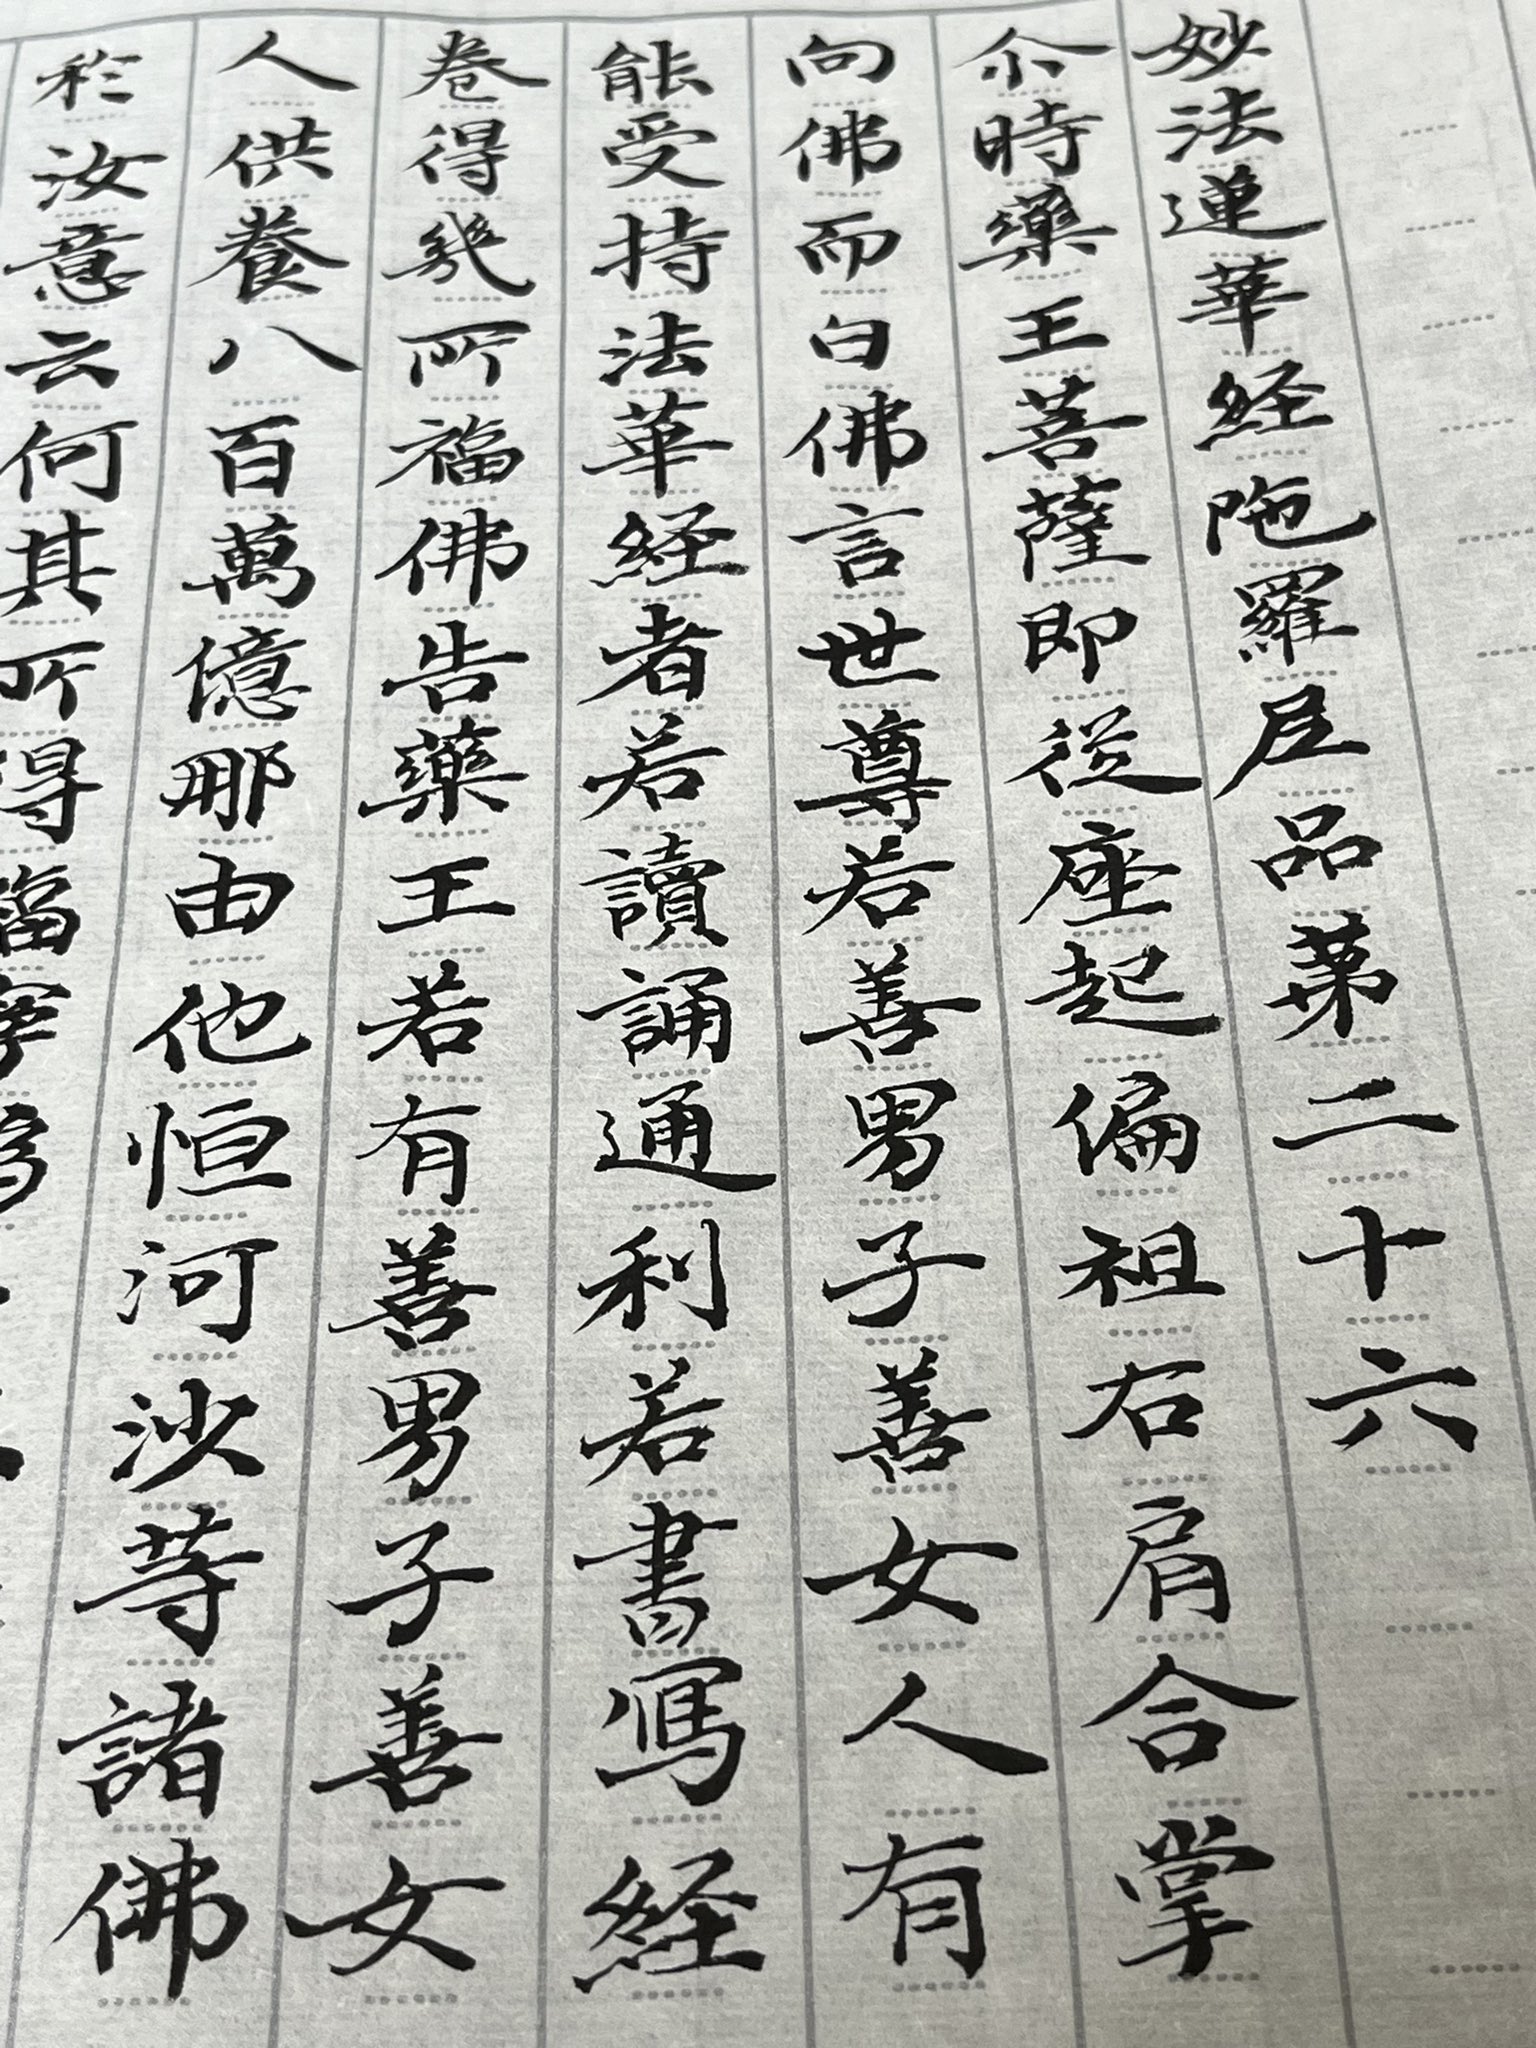 妙法蓮華経陁羅尼品第二十六
尒時藥王菩薩即従座起偏袒右肩合掌
向佛而白佛言世尊若善男子善女人有
能受持法華経者若讀誦通利若書寫経
巻得幾所福佛告藥王若有善男子善女
人供養八百萬億那由他恒河沙等諸佛
於汝意云何其所得福寧為